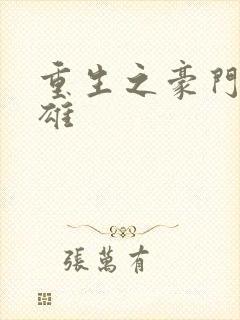 重生之豪門
雄
張萬有